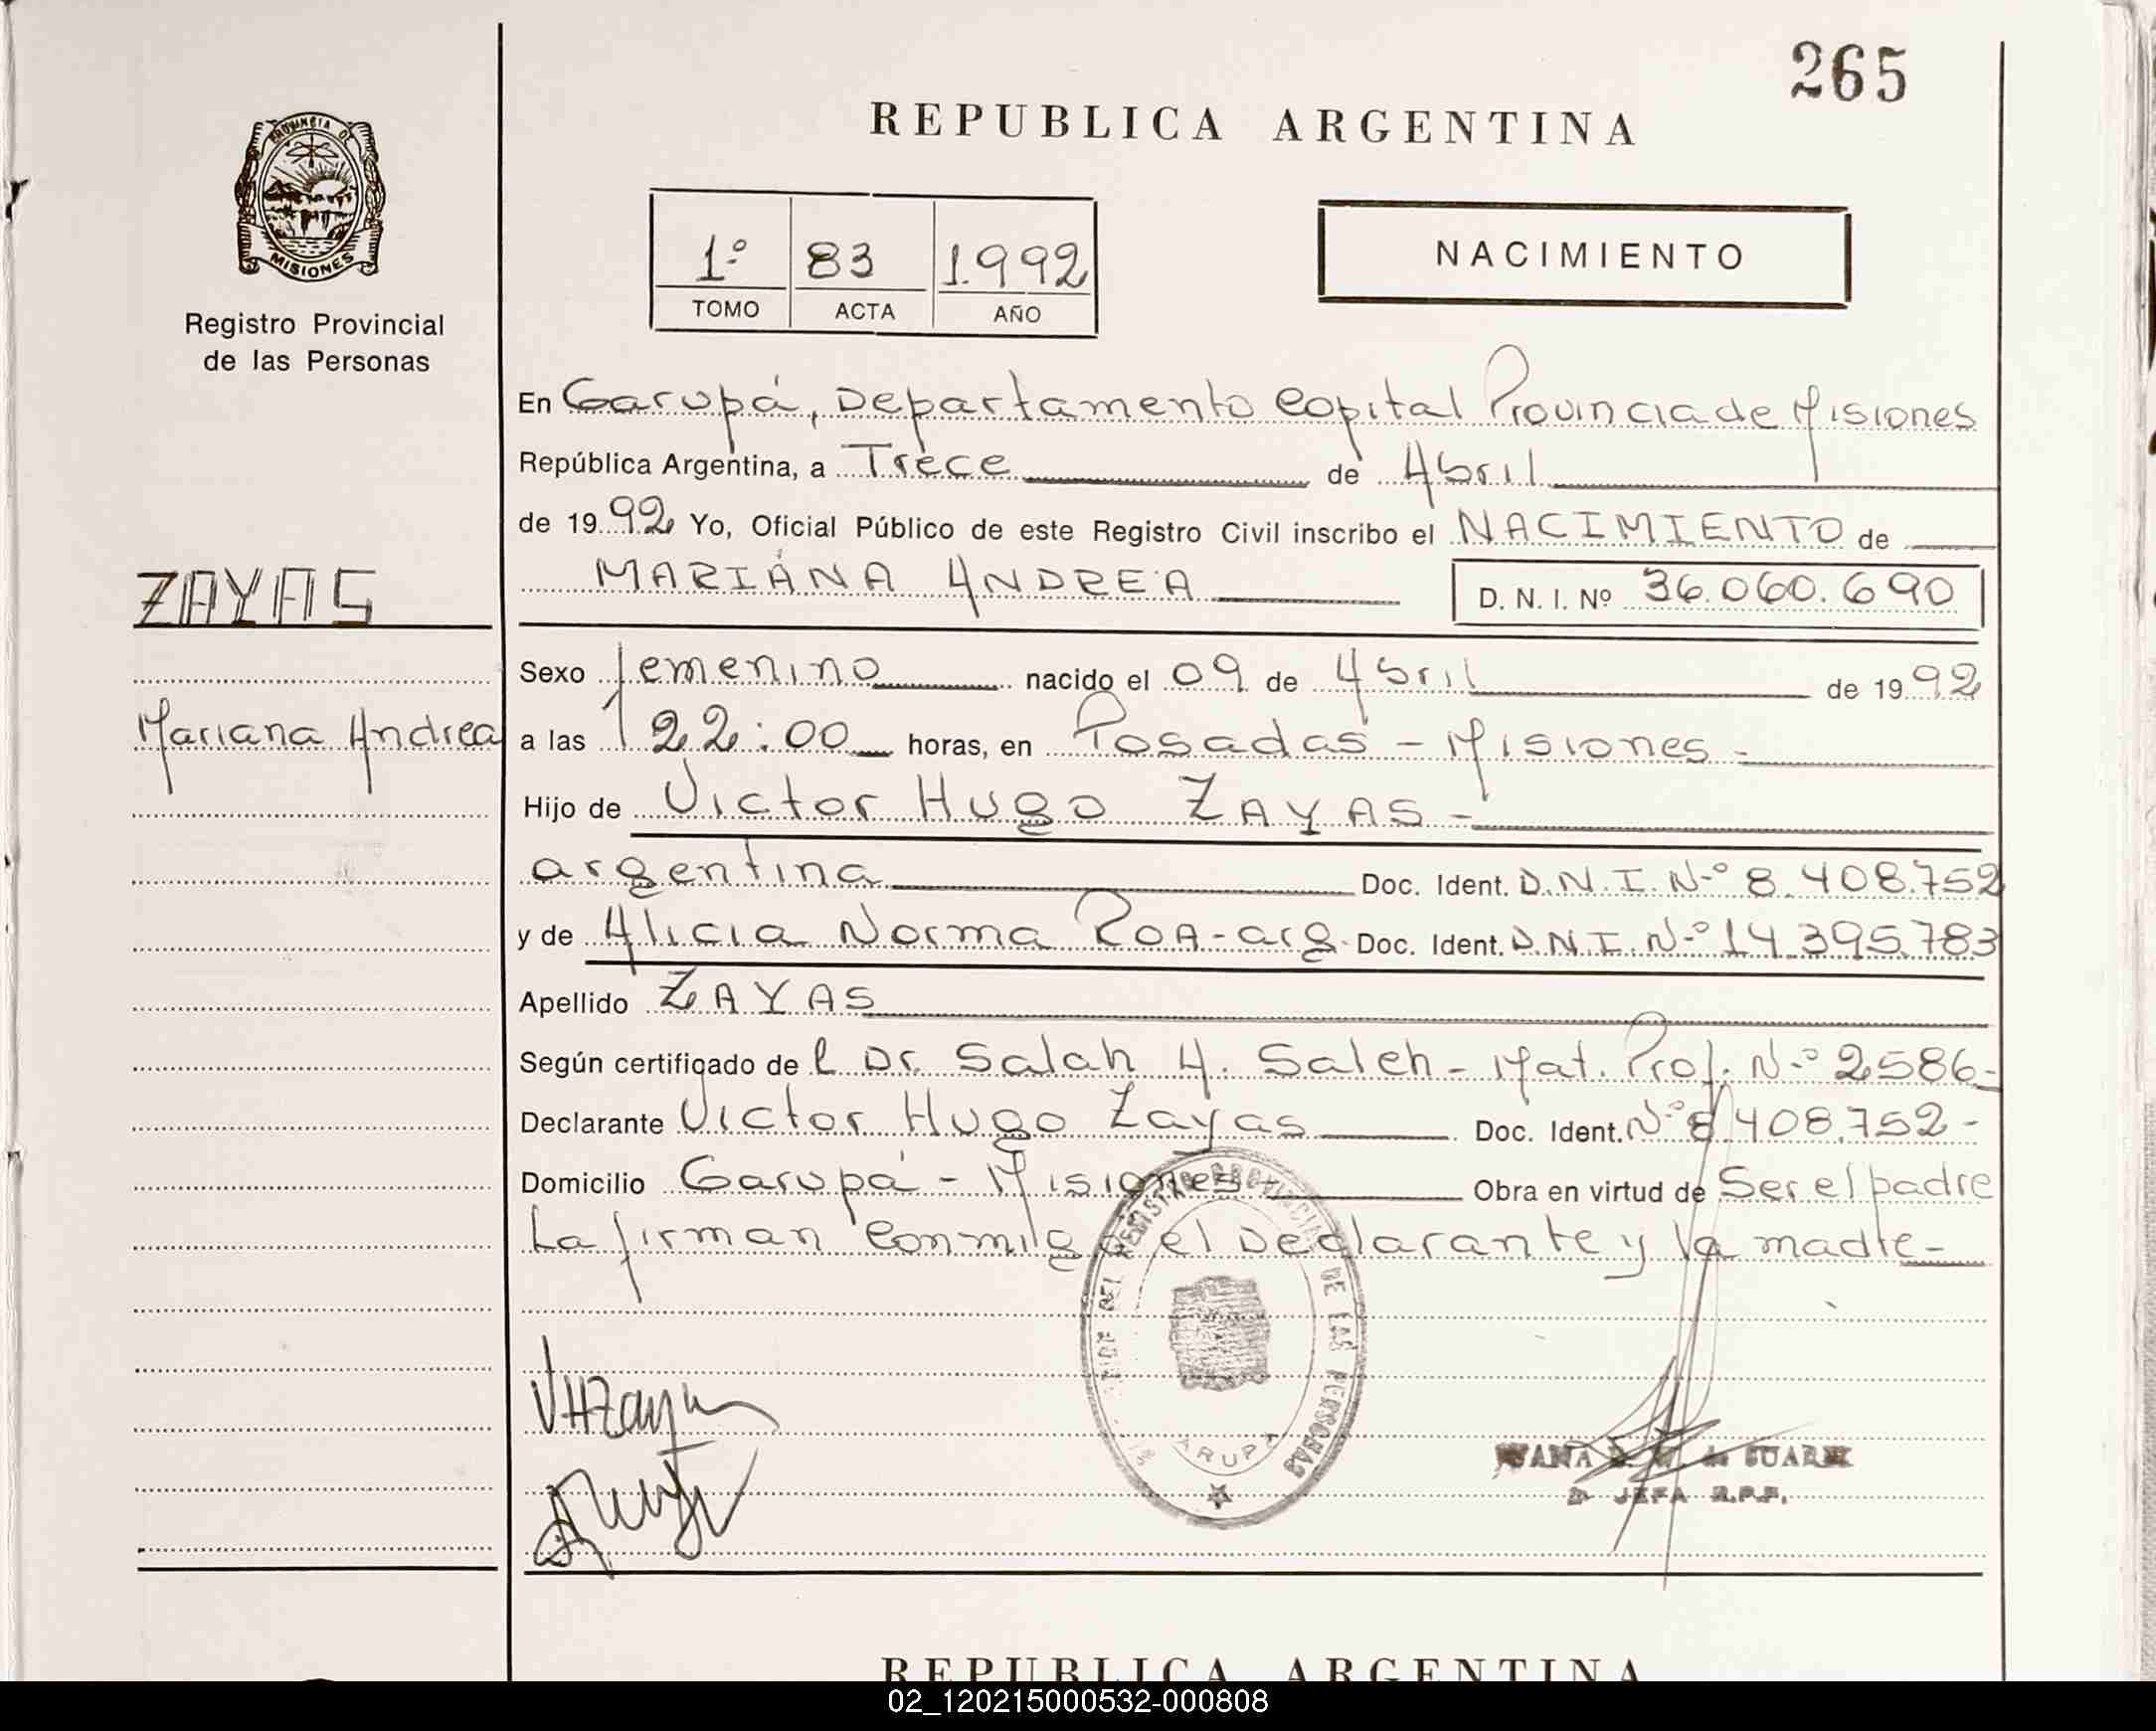 265
REPUBLICA ARGENTINA
PROVINCIA DE
MISIONES
Registro Provincial
de las Personas
1º 83 1.992
TOMO ACTA AÑO
NACIMIENTO
En Garupá, Departamento Capital Provincia de Misiones
República Argentina, a Trece de Abril
de 19 92 Yo, Oficial Público de este Registro Civil inscribo el NACIMIENTO de
MARIANA ANDREA D. N. I. Nº 36.060.690
ZAYAS
Mariana Andrea
Sexo femenino nacido el 09 de Abril de 19 92
a las 22:00 horas, en Posadas - Misiones -
Hijo de Victor Hugo ZAYAS -
argentina Doc. Ident. D.N.I. Nº 8.408.752
y de Alicia Norma ROA - arg. Doc. Ident. D.N.I. Nº 14.395.783
Apellido ZAYAS
Según certificado de l Dr. Salah A. Saleh - Mat. Prof. Nº 2586-
Declarante Victor Hugo Zayas Doc. Ident. Nº 8.408.752 -
Domicilio Garupá - Misiones - Obra en virtud de Ser el padre
La firman conmigo el Declarante y la madre -
REGISTRO PROVINCIAL DE LAS PERSONAS
GARUPA
VHZayas
JUANA de SUAREZ
JEFA R.P.P.
REPUBLICA ARGENTINA
02_120215000532-000808